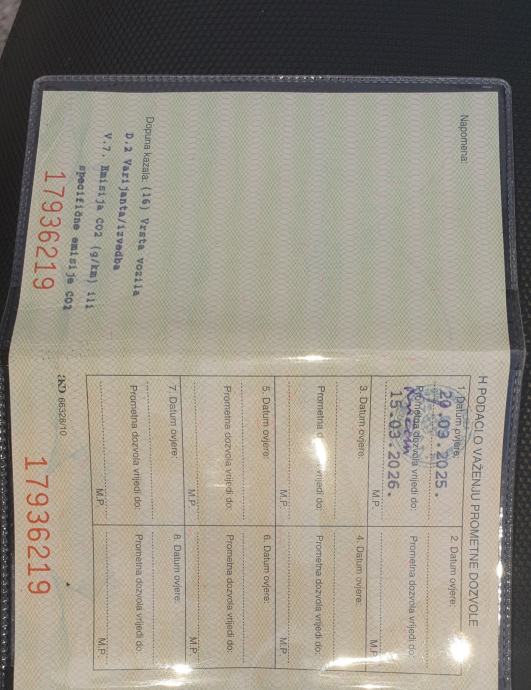 Napomena:
Dopuna kazala: (16) Vrsta vozila
D.2 Varijanta/izvedba
V.7. Emisija CO2 (g/km) ili
specifične emisije CO2
17936219
H PODACI O VAŽENJU PROMETNE DOZVOLE
1. Datum ovjere:
20.03.2025.
Prometna dozvola vrijedi do:
15.03.2026.
M.P.
2. Datum ovjere:
Prometna dozvola vrijedi do:
M.P.
3. Datum ovjere:
Prometna dozvola vrijedi do:
M.P.
4. Datum ovjere:
Prometna dozvola vrijedi do:
M.P.
5. Datum ovjere:
Prometna dozvola vrijedi do:
M.P.
6. Datum ovjere:
Prometna dozvola vrijedi do:
M.P.
7. Datum ovjere:
Prometna dozvola vrijedi do:
M.P.
8. Datum ovjere:
Prometna dozvola vrijedi do:
M.P.
AKD 66326/10
17936219